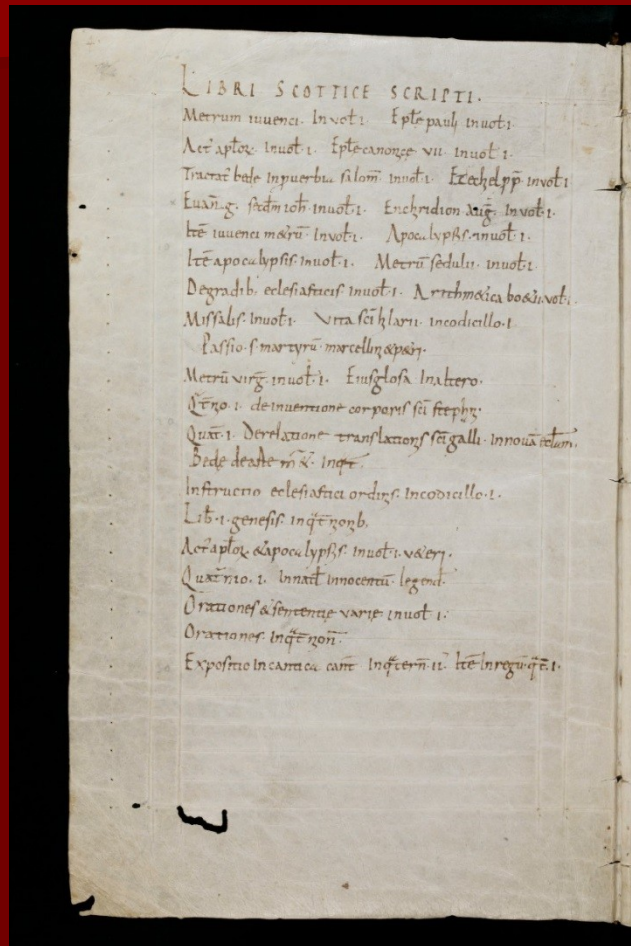 LIBRI SCOTTICE SCRIPTI.
Metrum iuvenci. In vol̄. I. Epl̄e pauli in vol̄. I.
Act̄ apl̄oꝝ. In vol̄. I. Epl̄e canonicę VII. in vol̄. I.
Tractat᷒ bede in ꝓverbia salom̄. in vol̄. I. Ezechel ꝓp̄. in vol̄. I
Evan̄g. sec̄dm ioh̄. in vol̄. I. Enchiridion auḡ. In vol̄. I.
Itē iuvenci m&rū. In vol̄. I. Apocalypsis. in vol̄. I.
Itē apocalypsis. in vol̄. I. Metrū sedulii. in vol̄. I.
De gradib; eclesiasticis in vol̄. I. Arithm&ica bo&ii. vol̄. I.
Missalis. in vol̄. I. Vita sc̄i hilarii. in codicillo. I.
Passio. s. martyrū. marcellini & p&ri.
Metrū virḡ. in vol̄. I. Eiusd̄ glosa. In altero.
Qt̄nio. I. de inventione corporis sc̄i stephani.
Quat̄. I. De relatione translationis sc̄i galli. in novā eccl̄am.
Bede de arte m&̄. in qt̄.
Instructio eclesiastici ordinis. in codicillo. I.
Lib̄. I. genesis. in qt̄nionib;
Act᷒ apl̄oꝝ & apocalypsis. in vol̄. I. v&eri.
Quat̄nio. I. In nat̄l innocentū. legend̄.
Orationes & sententię varię in vol̄. I.
Orationes. in qt̄nion̄.
Expositio in cantica cant̄. In qt̄ern̄. II. Itē In regū. qt̄. I.